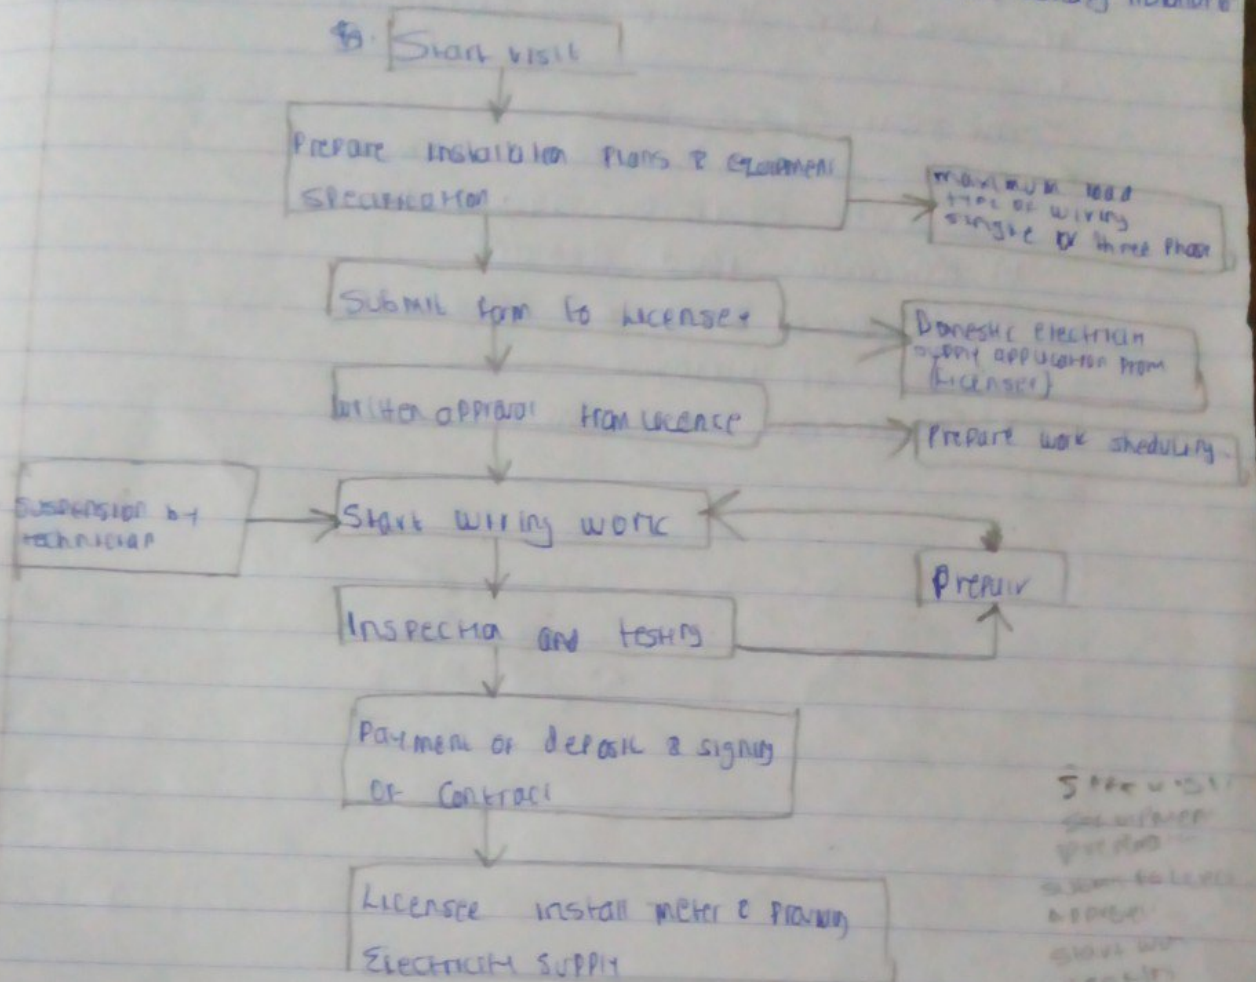 Start visit
Prepare installation plans & equipment
specification
maximum load
type of wiring
single or three phase
Submit form to Licenser
Domestic electrician
supply application from
(Licenser)
Written approval from licence
Prepare work sheduling
suspension by
technician
Start wiring work
Prepair
Inspection and testing
Payment of deposit & signing
of contract
Licensee install meter &
Electricity supply